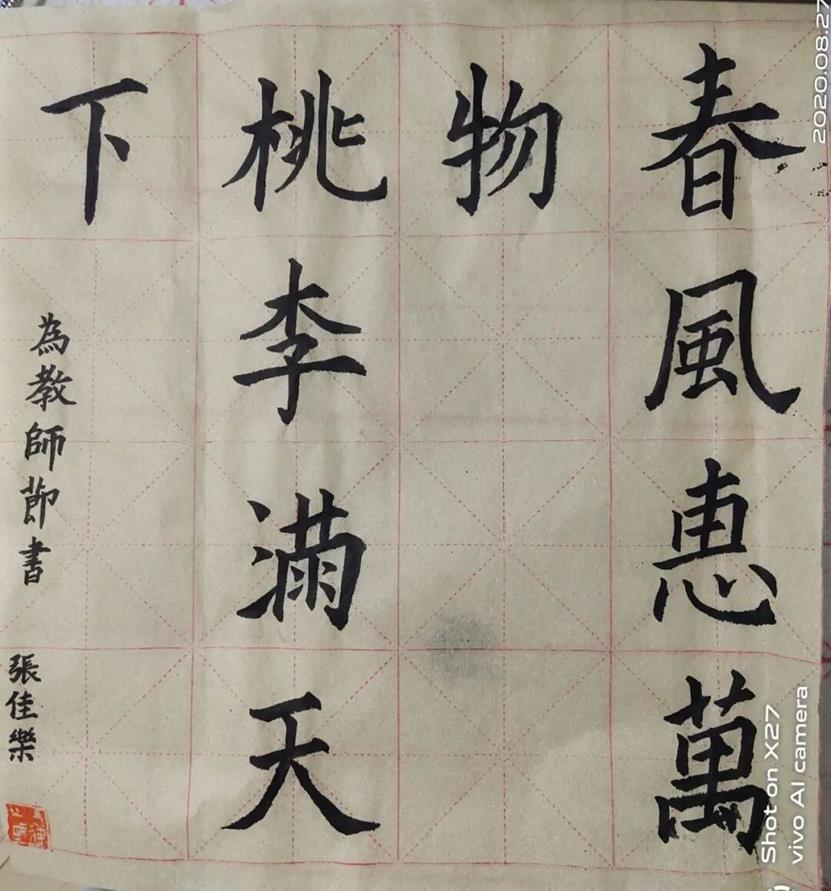 春風惠萬
物
桃李滿天
下
為教師節書
張佳樂
2020.08.27
Shot on X27
vivo AI camera